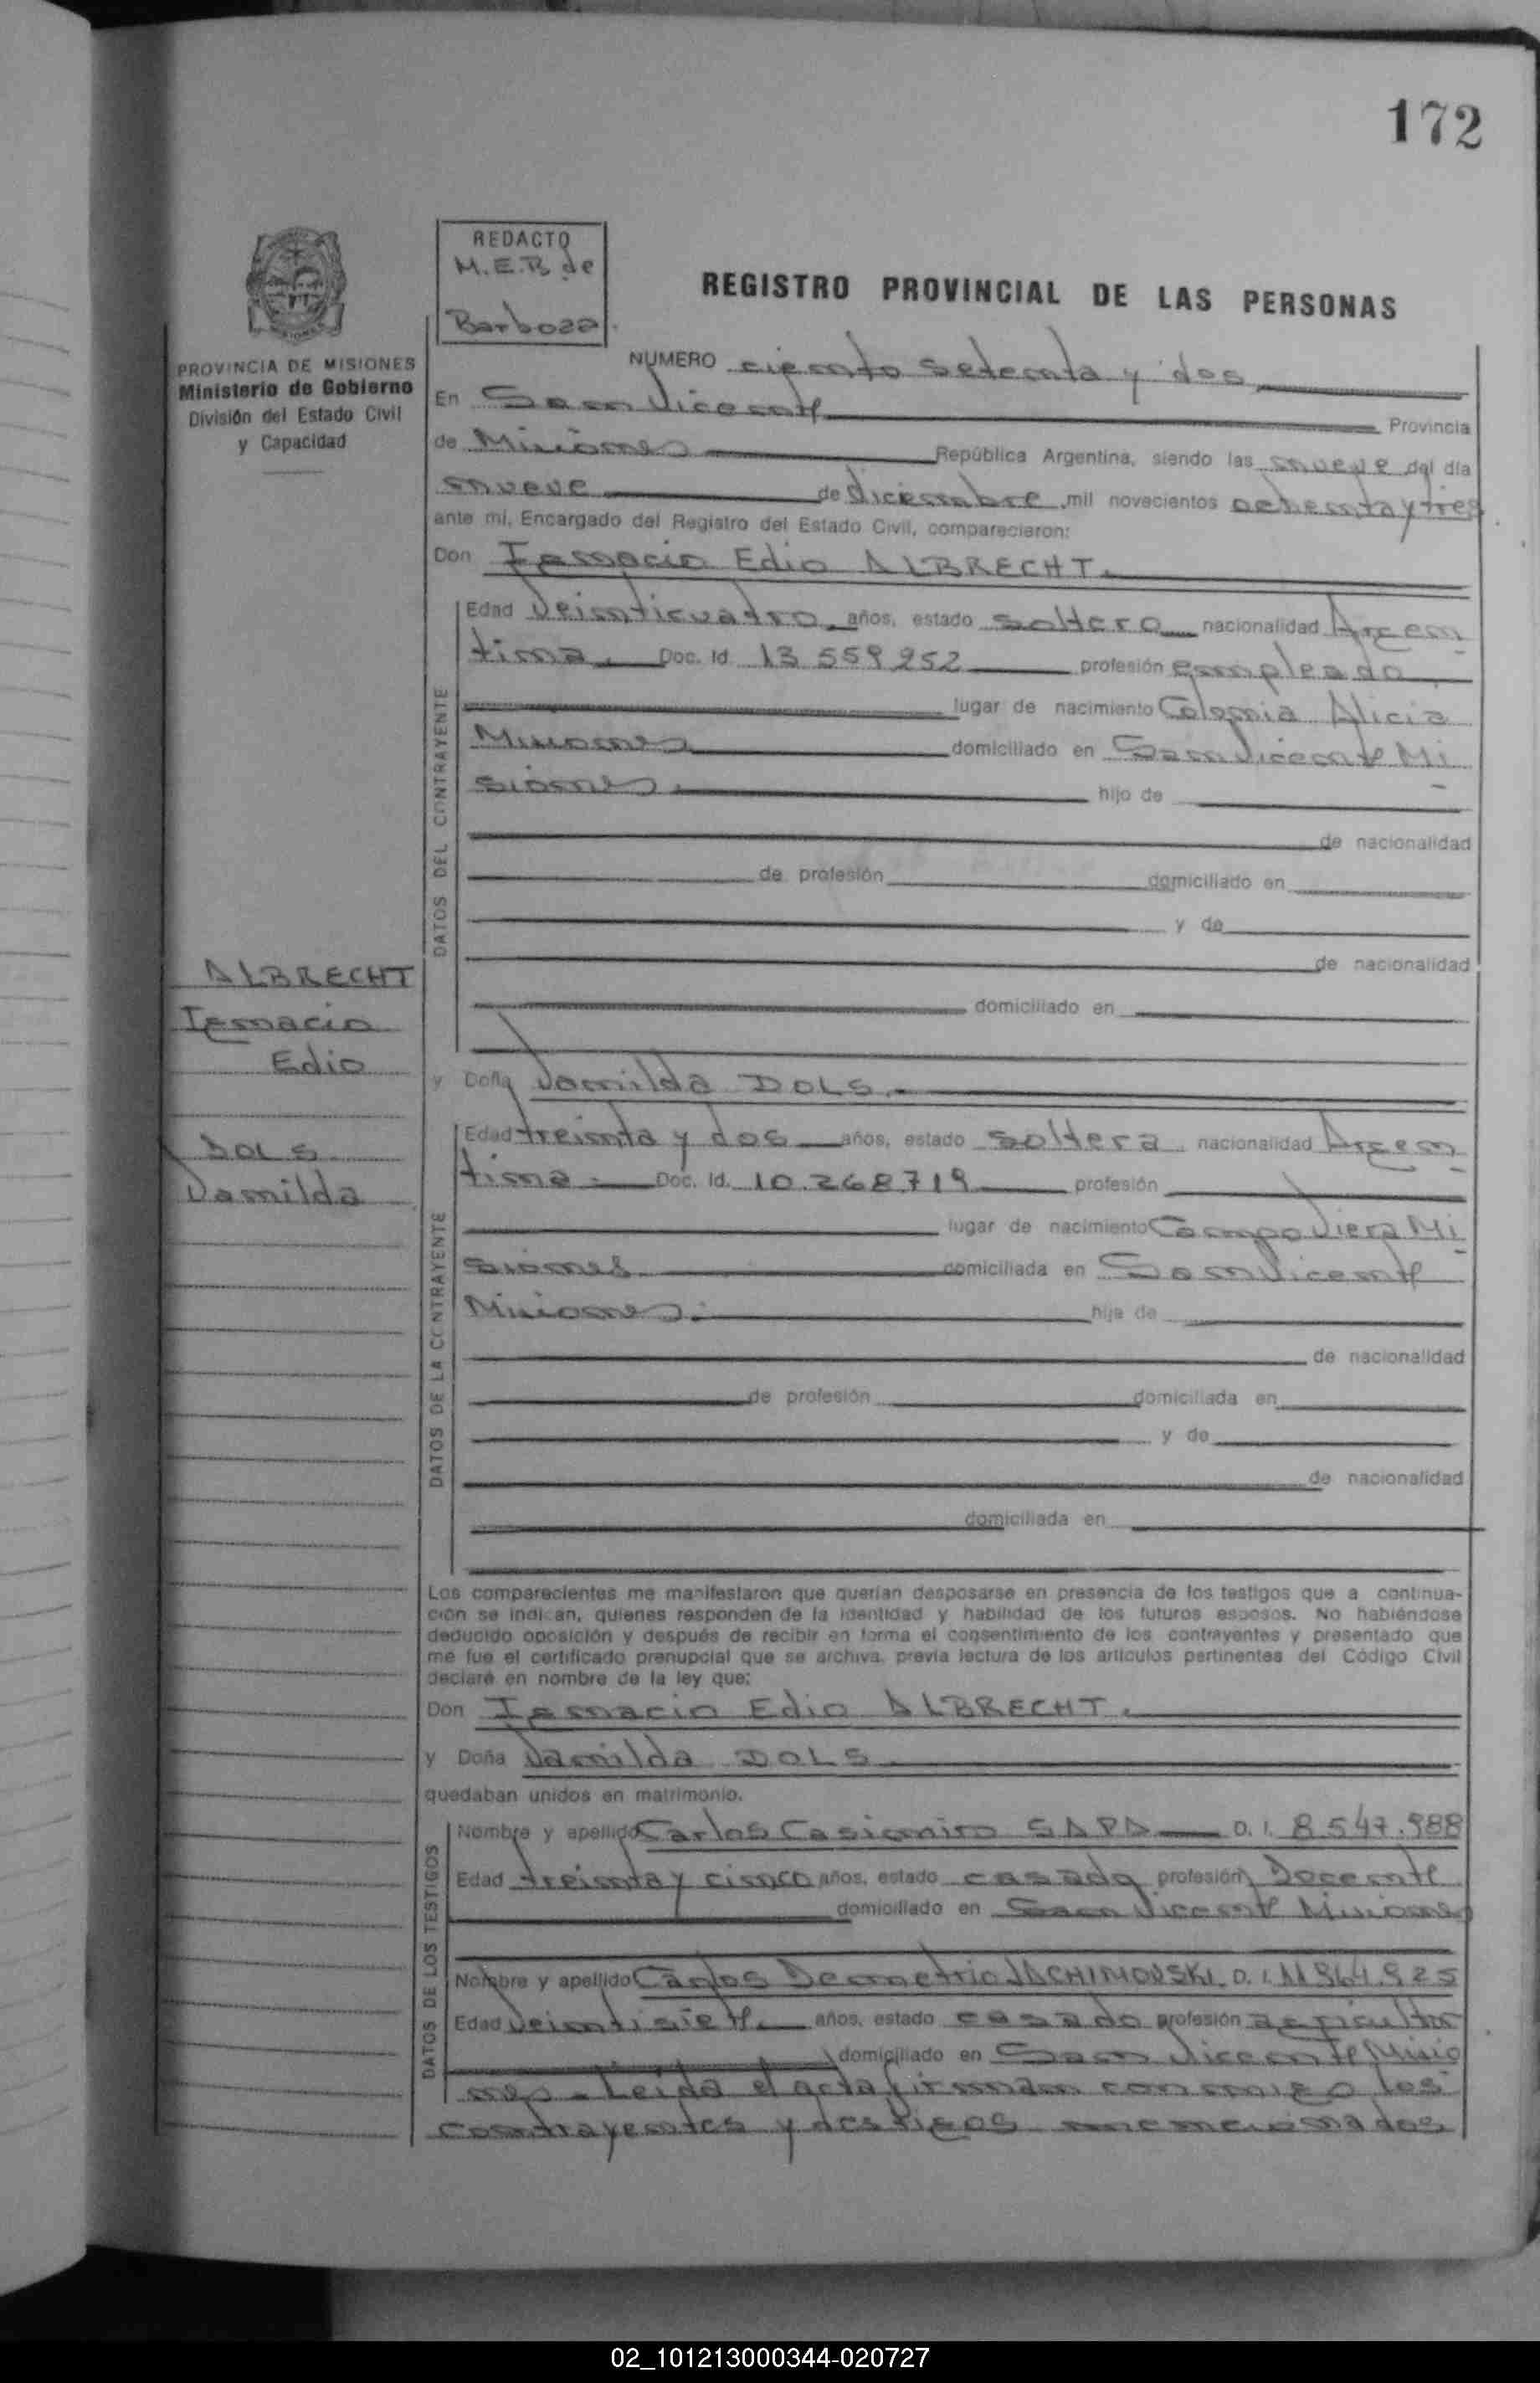 172
REDACTO
M.E.B de
Barboza.
REGISTRO PROVINCIAL DE LAS PERSONAS
PROVINCIA DE MISIONES
Ministerio de Gobierno
División del Estado Civil
y Capacidad
NUMERO ciento setenta y dos
En San Vicente Provincia
de Misiones República Argentina, siendo las nueve del día
nueve de diciembre mil novecientos ochenta y tres
ante mí, Encargado del Registro del Estado Civil, comparecieron:
Don Ignacio Edio ALBRECHT.
DATOS DEL CONTRAYENTE
Edad Veinticuatro años, estado soltero nacionalidad Argen
tina. Doc. Id. 13 559 252 profesión empleado
lugar de nacimiento Colonia Alicia
Misiones domiciliado en San Vicente Mi
siones. hijo de
de nacionalidad
de profesión domiciliado en
y de
de nacionalidad
domiciliado en
ALBRECHT
Ignacio
Edio
DOLS
Vanilda
y Doña Vanilda DOLS.
DATOS DE LA CONTRAYENTE
Edad treinta y dos años, estado soltera nacionalidad Argen
tina. Doc. Id. 10.268719 profesión
lugar de nacimiento Campo Viera Mi
siones domiciliada en San Vicente
Misiones. hija de
de nacionalidad
de profesión domiciliada en
y de
de nacionalidad
domiciliada en
Los comparecientes me manifestaron que querían desposarse en presencia de los testigos que a continua-
ción se indican, quienes responden de la identidad y habilidad de los futuros esposos. No habiéndose
deducido oposición y después de recibir en forma el consentimiento de los contrayentes y presentado que
me fue el certificado prenupcial que se archiva, previa lectura de los artículos pertinentes del Código Civil
declaré en nombre de la ley que:
Don Ignacio Edio ALBRECHT.
y Doña Vanilda DOLS
quedaban unidos en matrimonio.
DATOS DE LOS TESTIGOS
Nombre y apellido Carlos Casimiro SAPA D. I. 8547.988
Edad treinta y cinco años, estado casado profesión Docente
domiciliado en San Vicente Misiones
Nombre y apellido Carlos Demetrio JACHIMOVSKI D. I. 11964.925
Edad Veintisiete. años, estado casado profesión agricultor
domiciliado en San Vicente Misio
nes. Leída el acta firman conmigo los
contrayentes y testigos mencionados
02_101213000344-020727